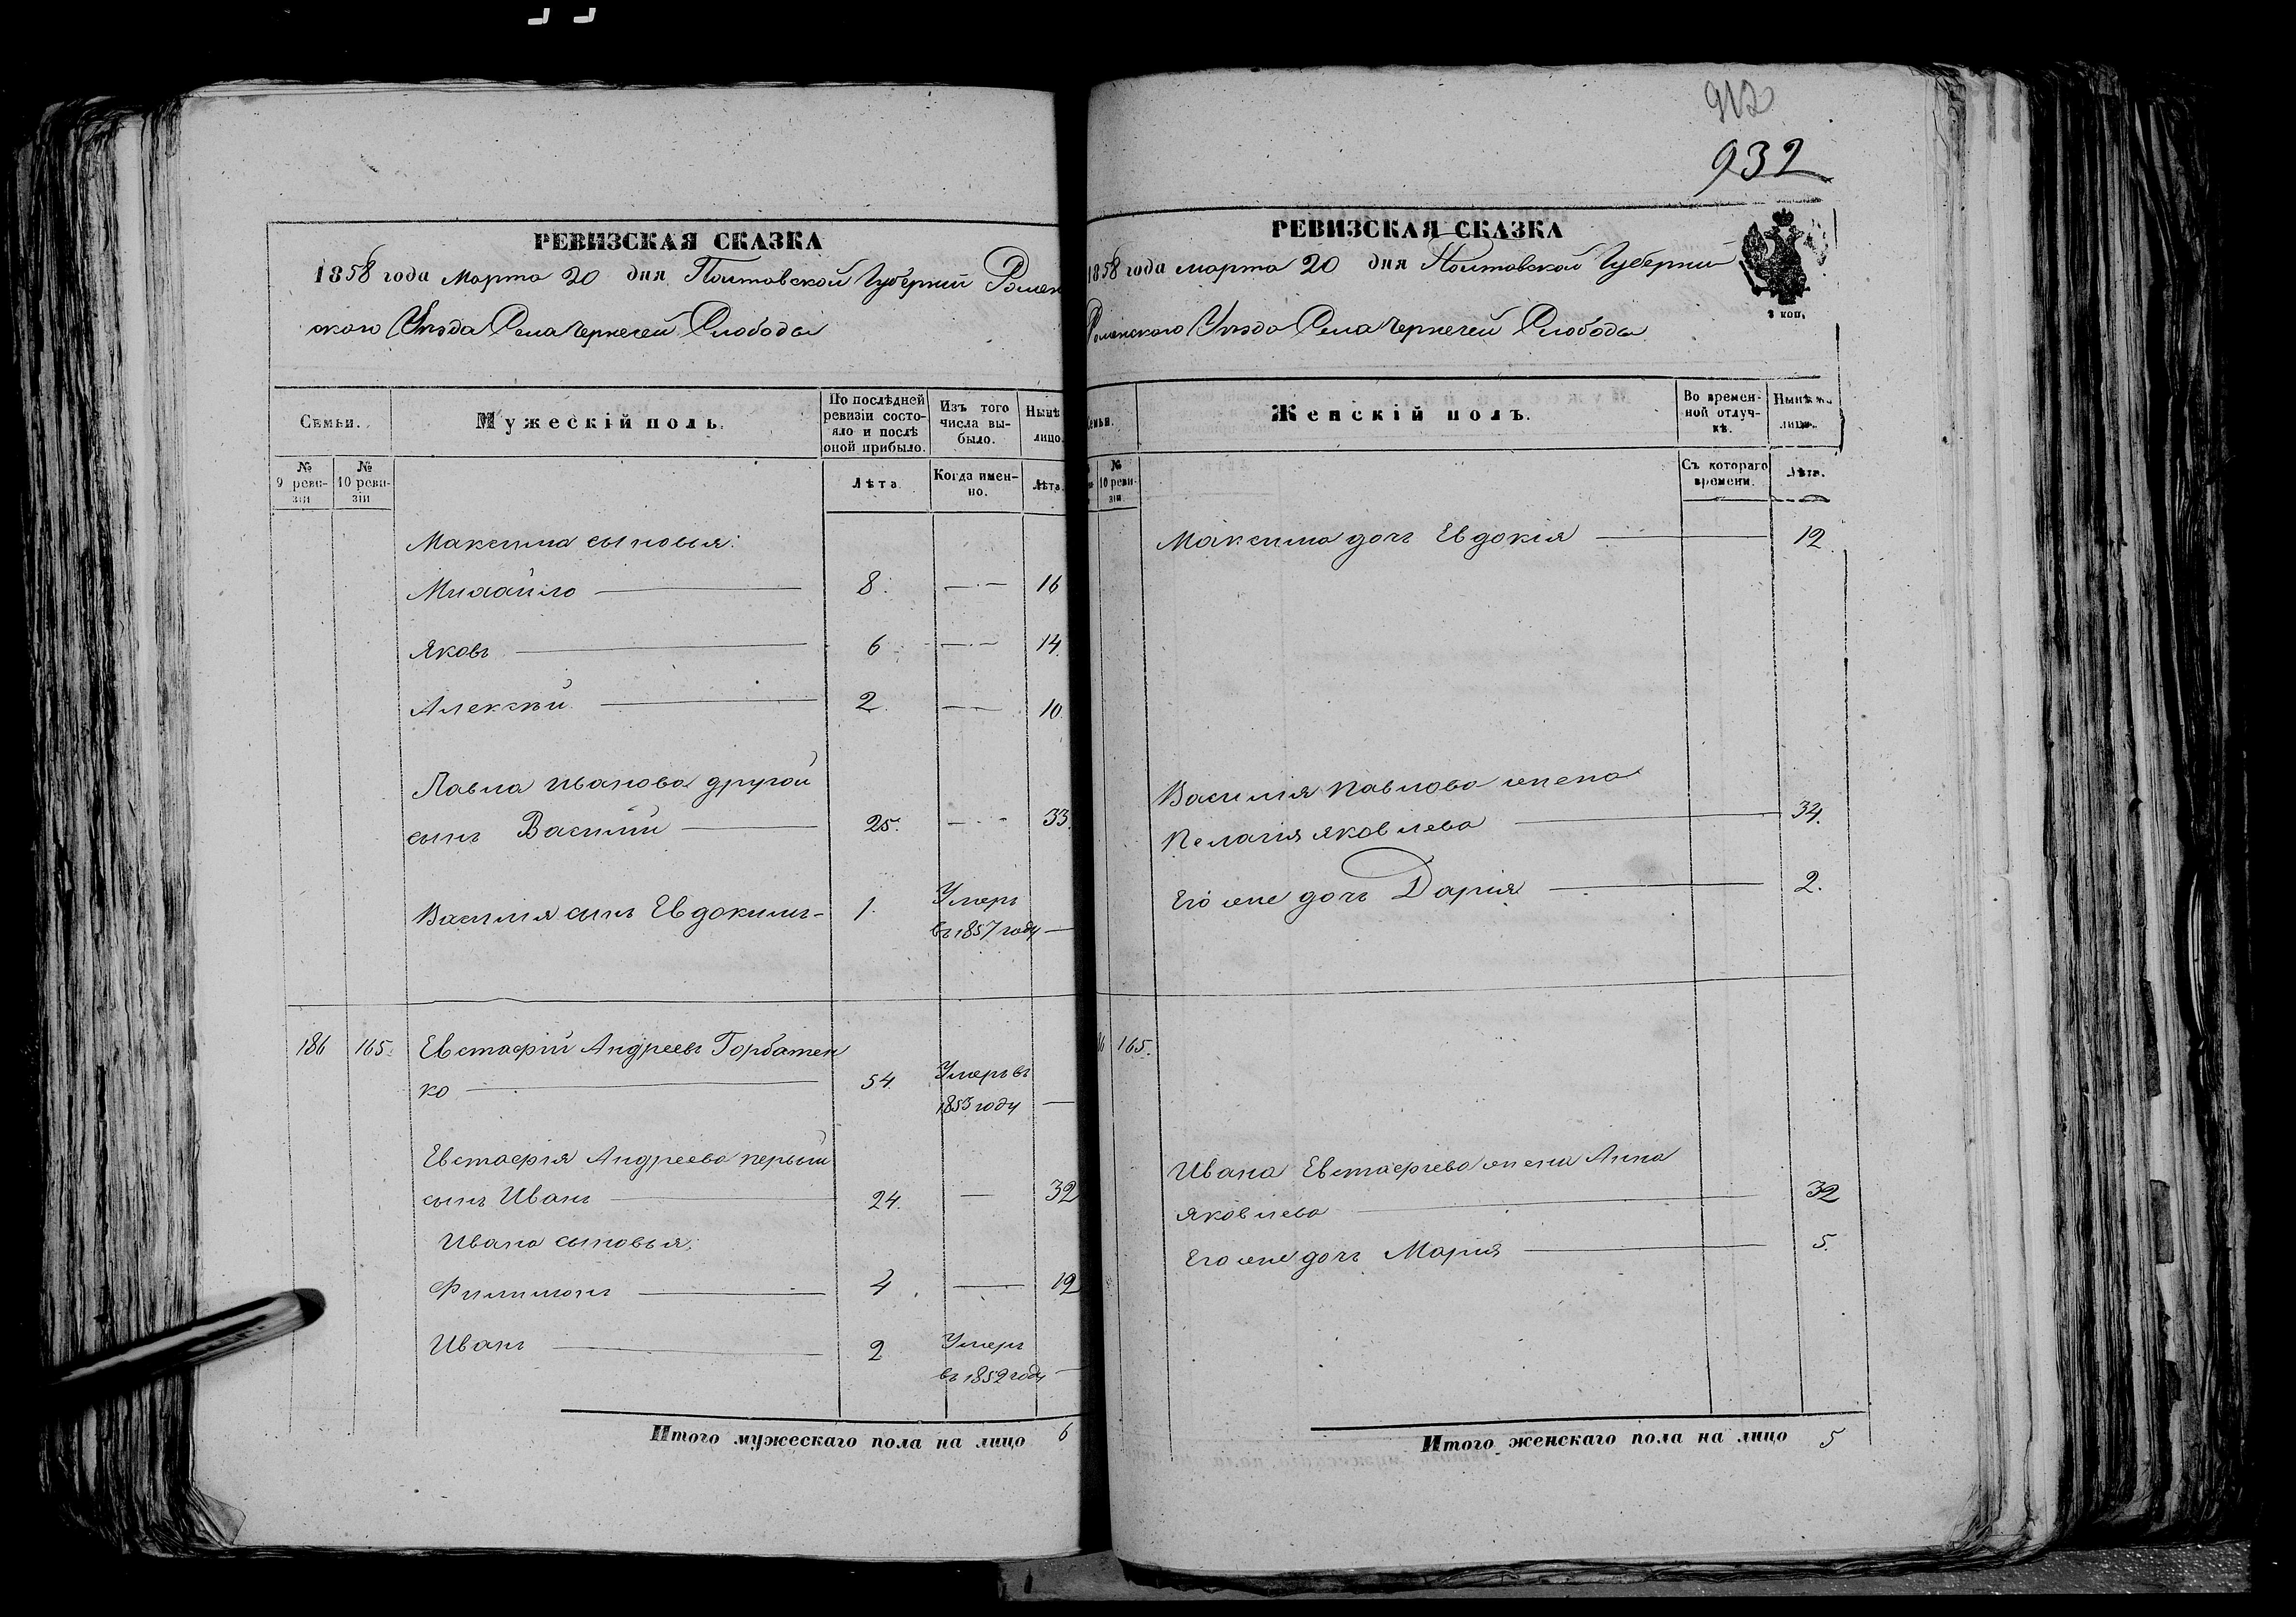 912
932
РЕВИЗСКАЯ СКАЗКА
1858 года Марта 20 дня Полтавской Губерніи Ромен
скаго Уѣзда Села Чернечей Слободы
Семьи.
Мужескій полъ.
По послѣдней ревизіи состояло и послѣ оной прибыло.
Изъ того числа выбыло.
Нынѣ
лицо.
№ 9 ревизіи
№ 10 ревизіи
Лѣта
Когда именно.
Лѣта.
Максима сыновья:
Михайло 8. 16
Яковъ 6 14
Алексѣй 2 10
Павла Иванова другой
сынъ Василий 25. 33.
Василия сынъ Евдокимъ 1. Умеръ
въ 1857 году
186 165. Евстафий Андреевъ Горбатен
ко 54 Умеръ въ
1853 году
Евстафия Андреева первый
сынъ Иванъ 24. 32
Ивана сыновья:
Филимонъ 4 12
Иванъ 2 Умеръ
въ 1852 году
Итого мужескаго пола на лицо 6
РЕВИЗСКАЯ СКАЗКА
1858 года марта 20 дня Полтавской Губерніи
2 коп.
Роменскаго Уѣзда Села Чернечей Слободы
Женскій полъ.
Во временной отлучкѣ.
Нынѣ на лицо.
№ 10 ревизіи
Съ котораго времени.
Лѣта.
Максима дочь Евдокія 12
Василия Павлова жена
Пелагия Яковлева 34.
Его же дочь Дария 2.
165.
Ивана Евстафиева жена Анна
Яковлева 32
Его же дочь Мария 5.
Итого женскаго пола на лицо 5